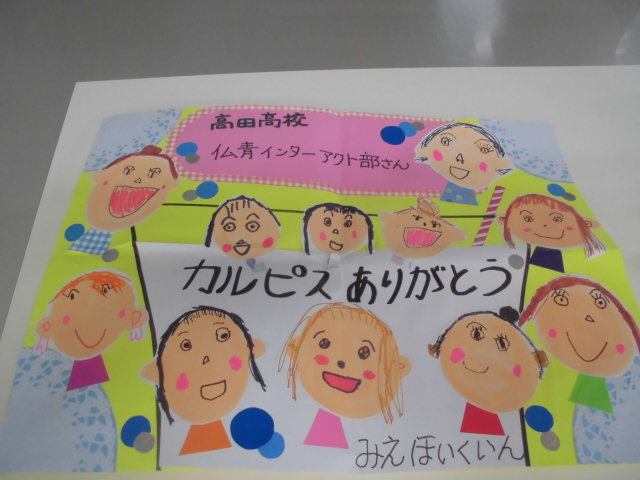 高田高校
仏青インターアクト部さん
カルピス ありがとう
みえ ほいくいん